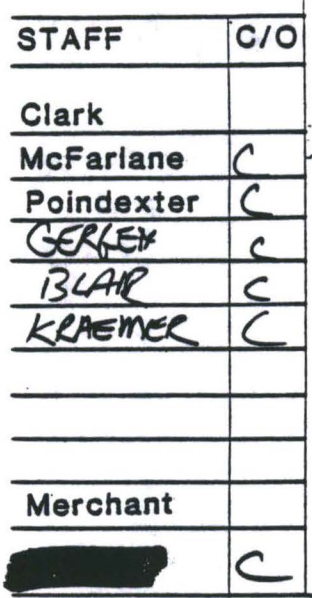 STAFF C/O
Clark
McFarlane C
Poindexter C
GERGEN C
BLAIR C
KRAEMER C
Merchant
C